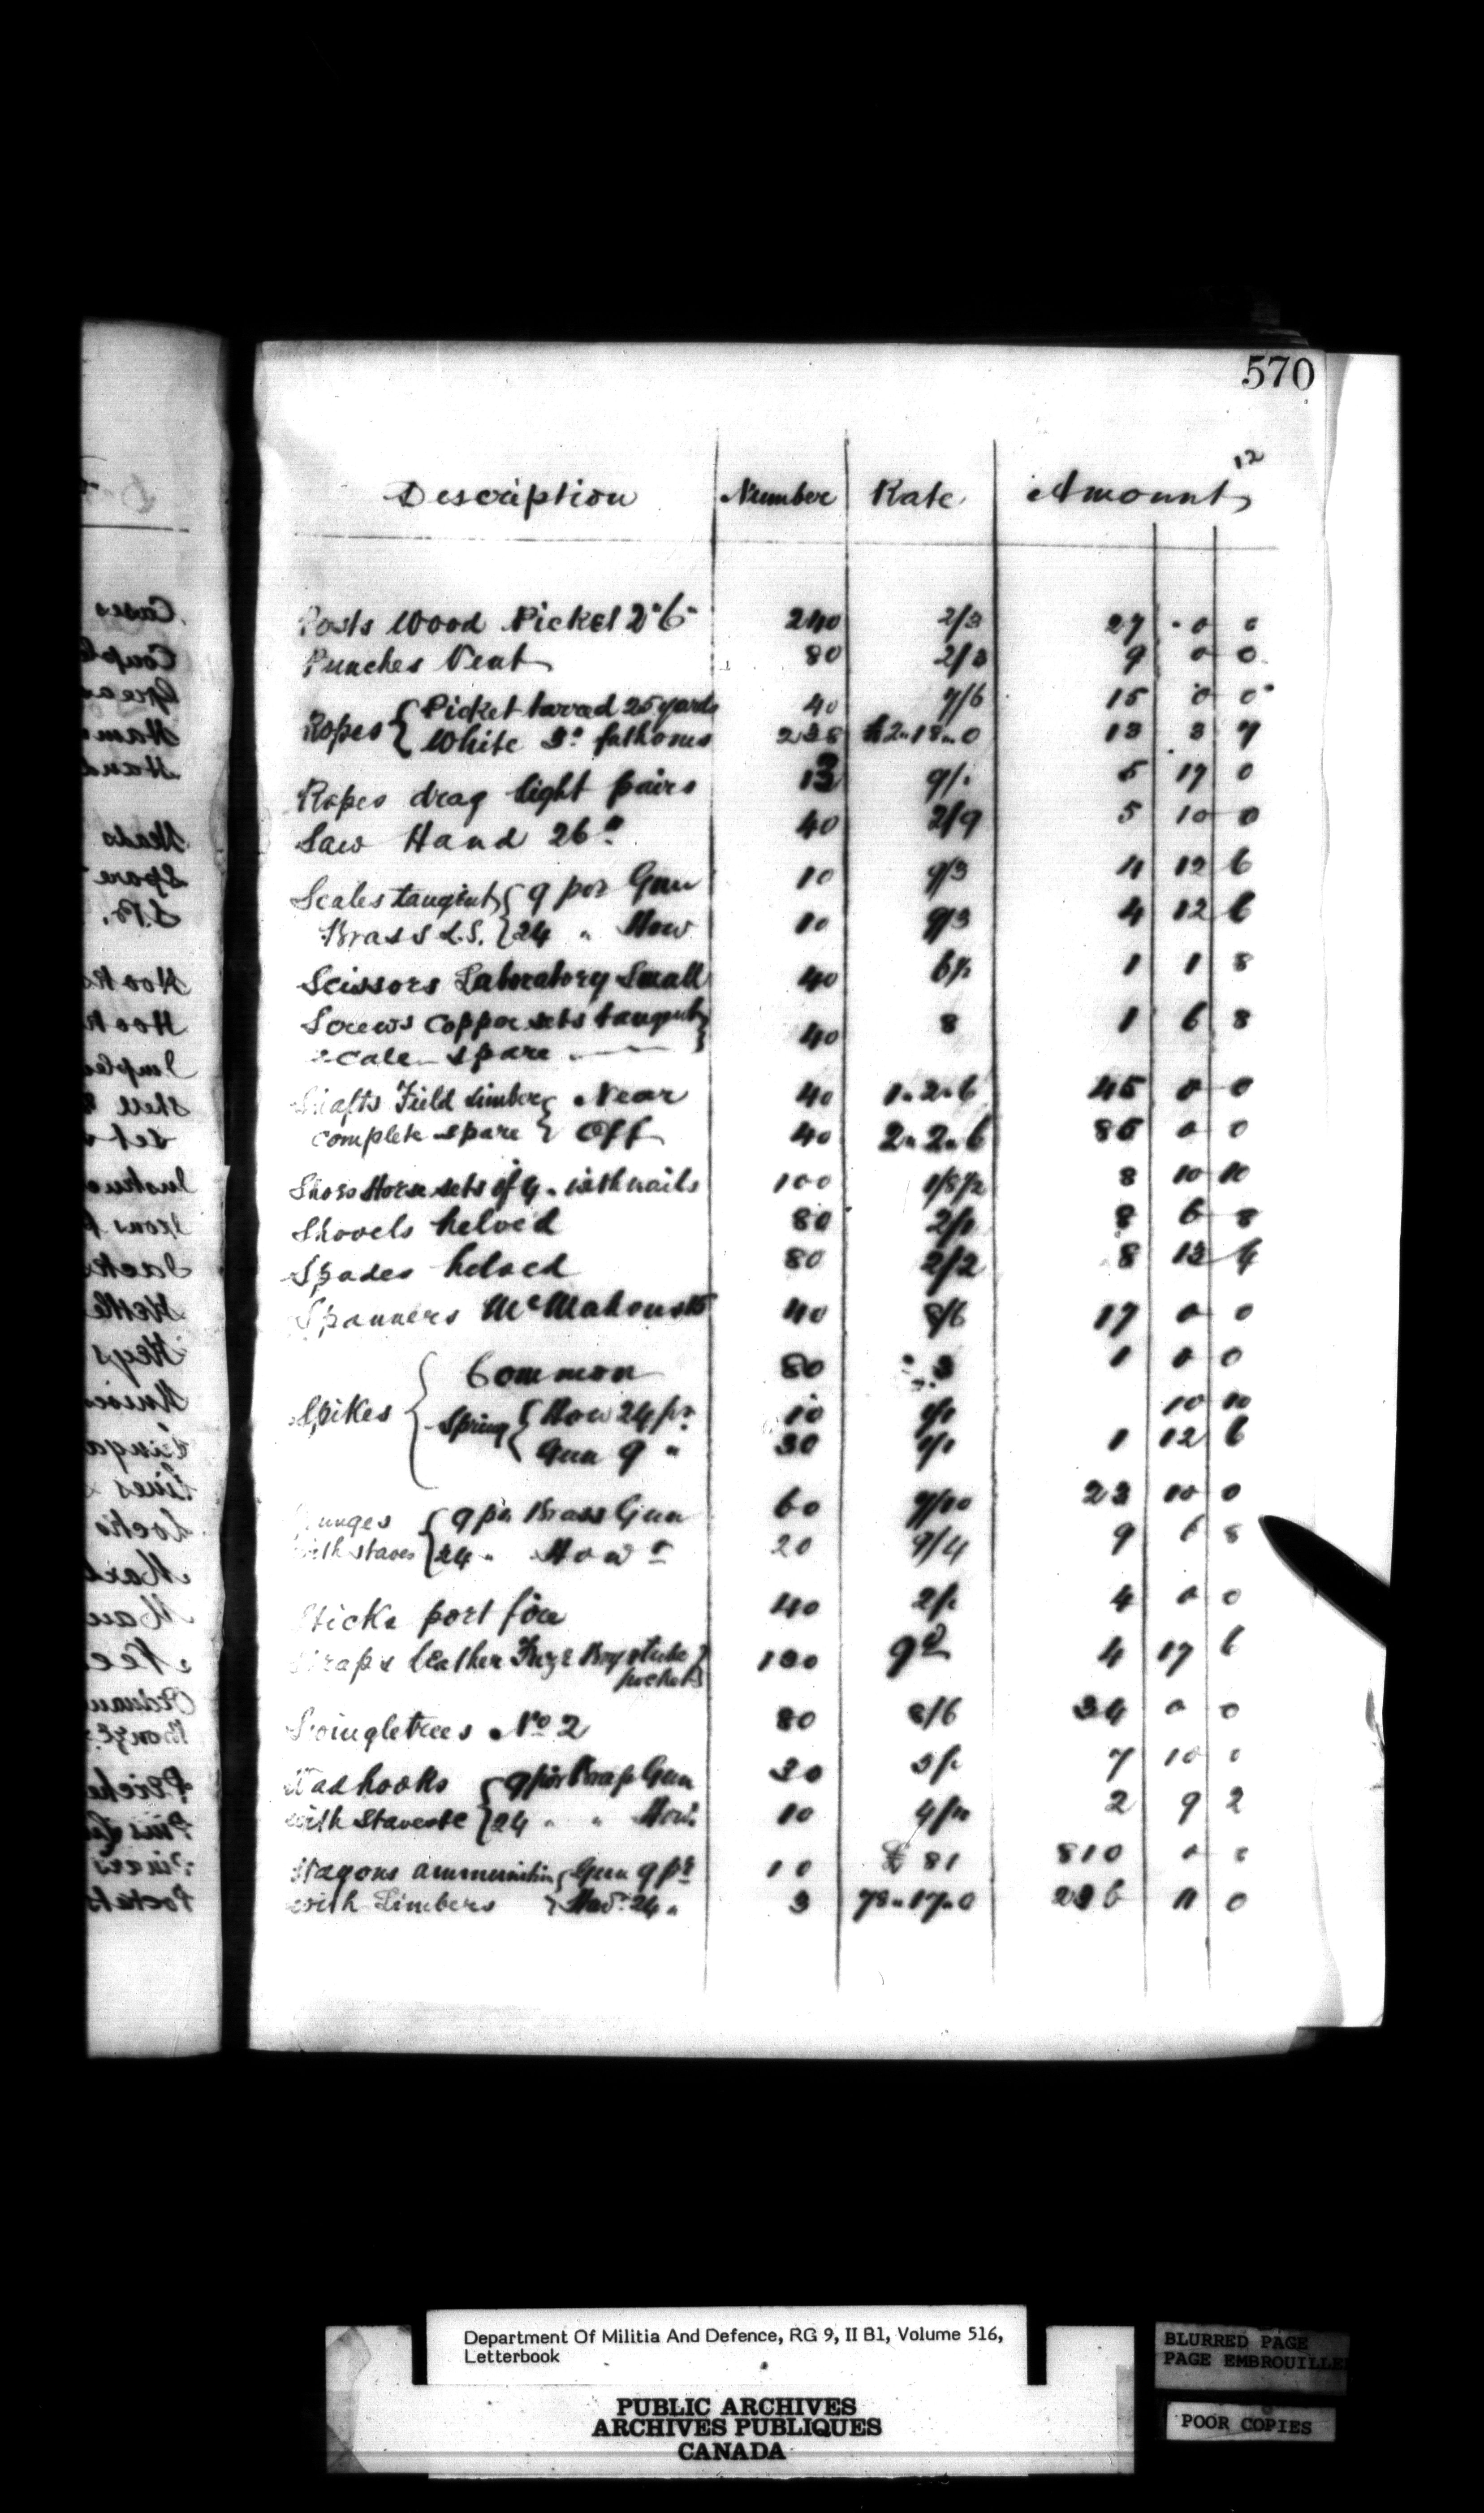 570
12
Description Number Rate Amount
Posts Wood Picket 2"6" 240 2/3 27 0 0
Punches Vent 80 2/3 9 0 0
Ropes { Picket tarred 25 yards 40 7/6 15 0 0
{ White 3" fathoms 228 2"18"0 13 3 7
Ropes drag light pairs 13 9/. 5 17 0
Saw Hand 26" 40 2/9 5 10 0
Scales tangent { 9 por Gun 10 9/3 4 12 6
Brass L.S. { 24 " How 10 9/3 4 12 6
Scissors Laboratory Small 40 6½ 1 1 8
Screws Copper sets tangent } 40 8 1 6 8
scale spare
Shafts Field limber { Near 40 1"2"6 45 0 0
complete spare { Off 40 2"2"6 85 0 0
Shoes Horse sets of 4 with nails 100 1/8½ 8 10 10
Shovels helved 80 2/1 8 6 8
Spades helved 80 2/2 8 13 4
Spanners McMahons 40 8/6 17 0 0
Spikes { Common 80 3 1 0 0
Spring { How 24 pr 10 1/1 10 10
{ Gun 9 " 30 1/1 1 12 6
Spunges { 9 pr Brass Gun 60 7/10 23 10 0
with staves { 24 " Howr 20 9/4 9 6 8
Sticks port fire 40 2/. 4 0 0
Straps leather Fuze Boy & tube } 130 9d 4 17 6
pockets
Swingletrees No 2 80 8/6 34 0 0
Wadhooks { 9 por Brass Gun 30 5/. 7 10 0
with Staves &c { 24 " " Howr 10 4/11 2 9 2
Wagons ammunition { Gun 9 pr 10 £81 810 0 0
with Limbers { Howr 24 " 3 78"17"0 236 11 0
Cases
Hooks
Keys
Department Of Militia And Defence, RG 9, II B1, Volume 516,
Letterbook
PUBLIC ARCHIVES
ARCHIVES PUBLIQUES
CANADA
BLURRED PAGE
PAGE EMBROUILLE
POOR COPIES